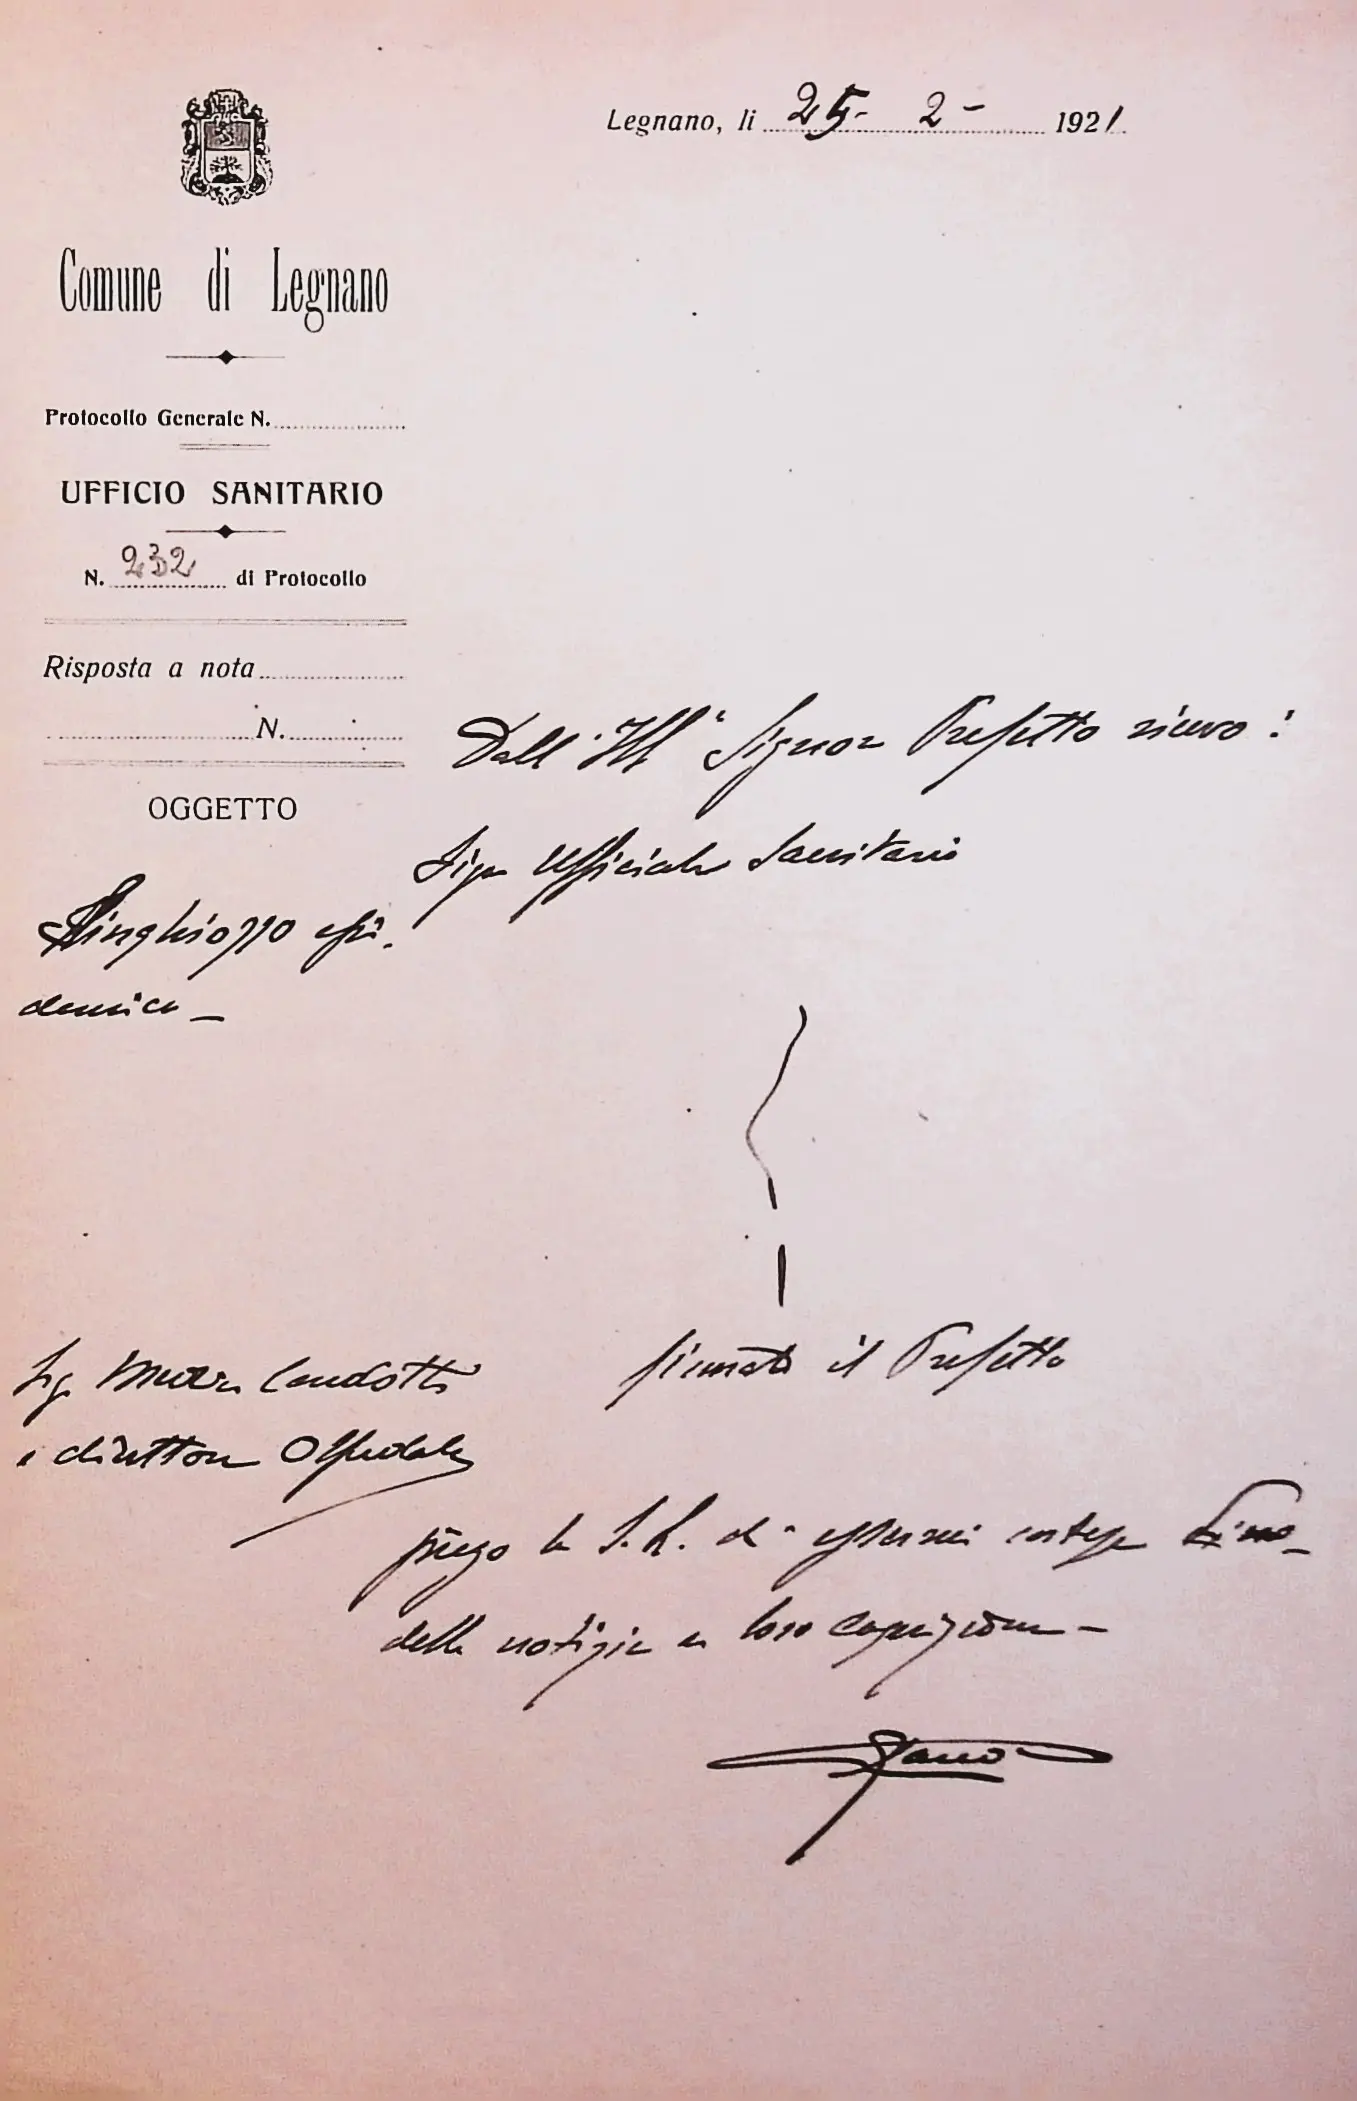 Legnano, li 25- 2- 1921
Comune di Legnano
Protocollo Generale N.
UFFICIO SANITARIO
N. 232 di Protocollo
Risposta a nota
N.
OGGETTO
Singhiozzo epi-
demico -
Dall'Ill° Signor Prefetto ricevo:
Sigr Ufficiale Sanitario
firmato il Prefetto
Sig. Medici Condotti
e direttore Ospedale
prego le S.L. di essermi cortesi
delle notizie a loro cognizione -